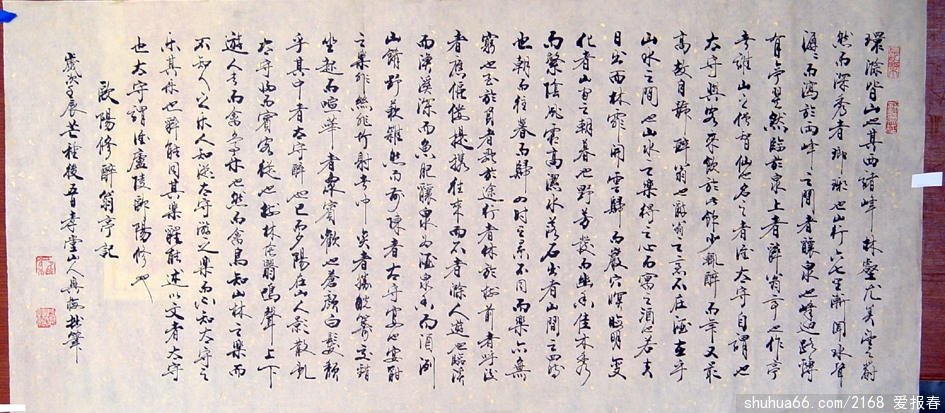 環滁皆山也其西諸峰林壑尤美望之蔚
然而深秀者瑯琊也山行六七里漸聞水聲
潺潺而瀉於兩峰之間者釀泉也峰迴路轉
有亭翼然臨於泉上者醉翁亭也作亭
者誰山之僧智仙也名之者誰太守自謂也
太守與客來飲於此飲少輒醉而年又最
高故自號醉翁也醉翁之意不在酒在乎
山水之間也山水之樂得之心而寓之酒也若夫
日出而林霏開雲歸而巖穴暝晦明變
化者山間之朝暮也野芳發而幽香佳木秀
而繁陰風霜高潔水落石出者山間之四時
也朝而往暮而歸四時之景不同而樂亦無
窮也至於負者歌於途行者休於樹前者呼後
者應傴僂提攜往來而不者滁人遊也臨溪
而漁溪深而魚肥釀泉為酒泉香而酒洌
山餚野蔌雜然而前陳者太守宴也宴酣
之樂非絲非竹射者中奕者勝觥籌交錯
坐起而喧華者眾賓歡也蒼顏白髮頹
乎其中者太守醉也已而夕陽在山人影散亂
太守歸而賓客從也樹林陰翳鳴聲上下
遊人去而禽鳥樂也然而禽鳥知山林之樂而
不知人之樂人知從太守遊之樂而不知太守之
樂其樂也醉能同其樂醒能述以文者太守
也太守謂誰廬陵歐陽修也
歐陽修醉翁亭記
歲次壬辰芒種後五日 堂山人
shuhua66.com/2168 爱报春